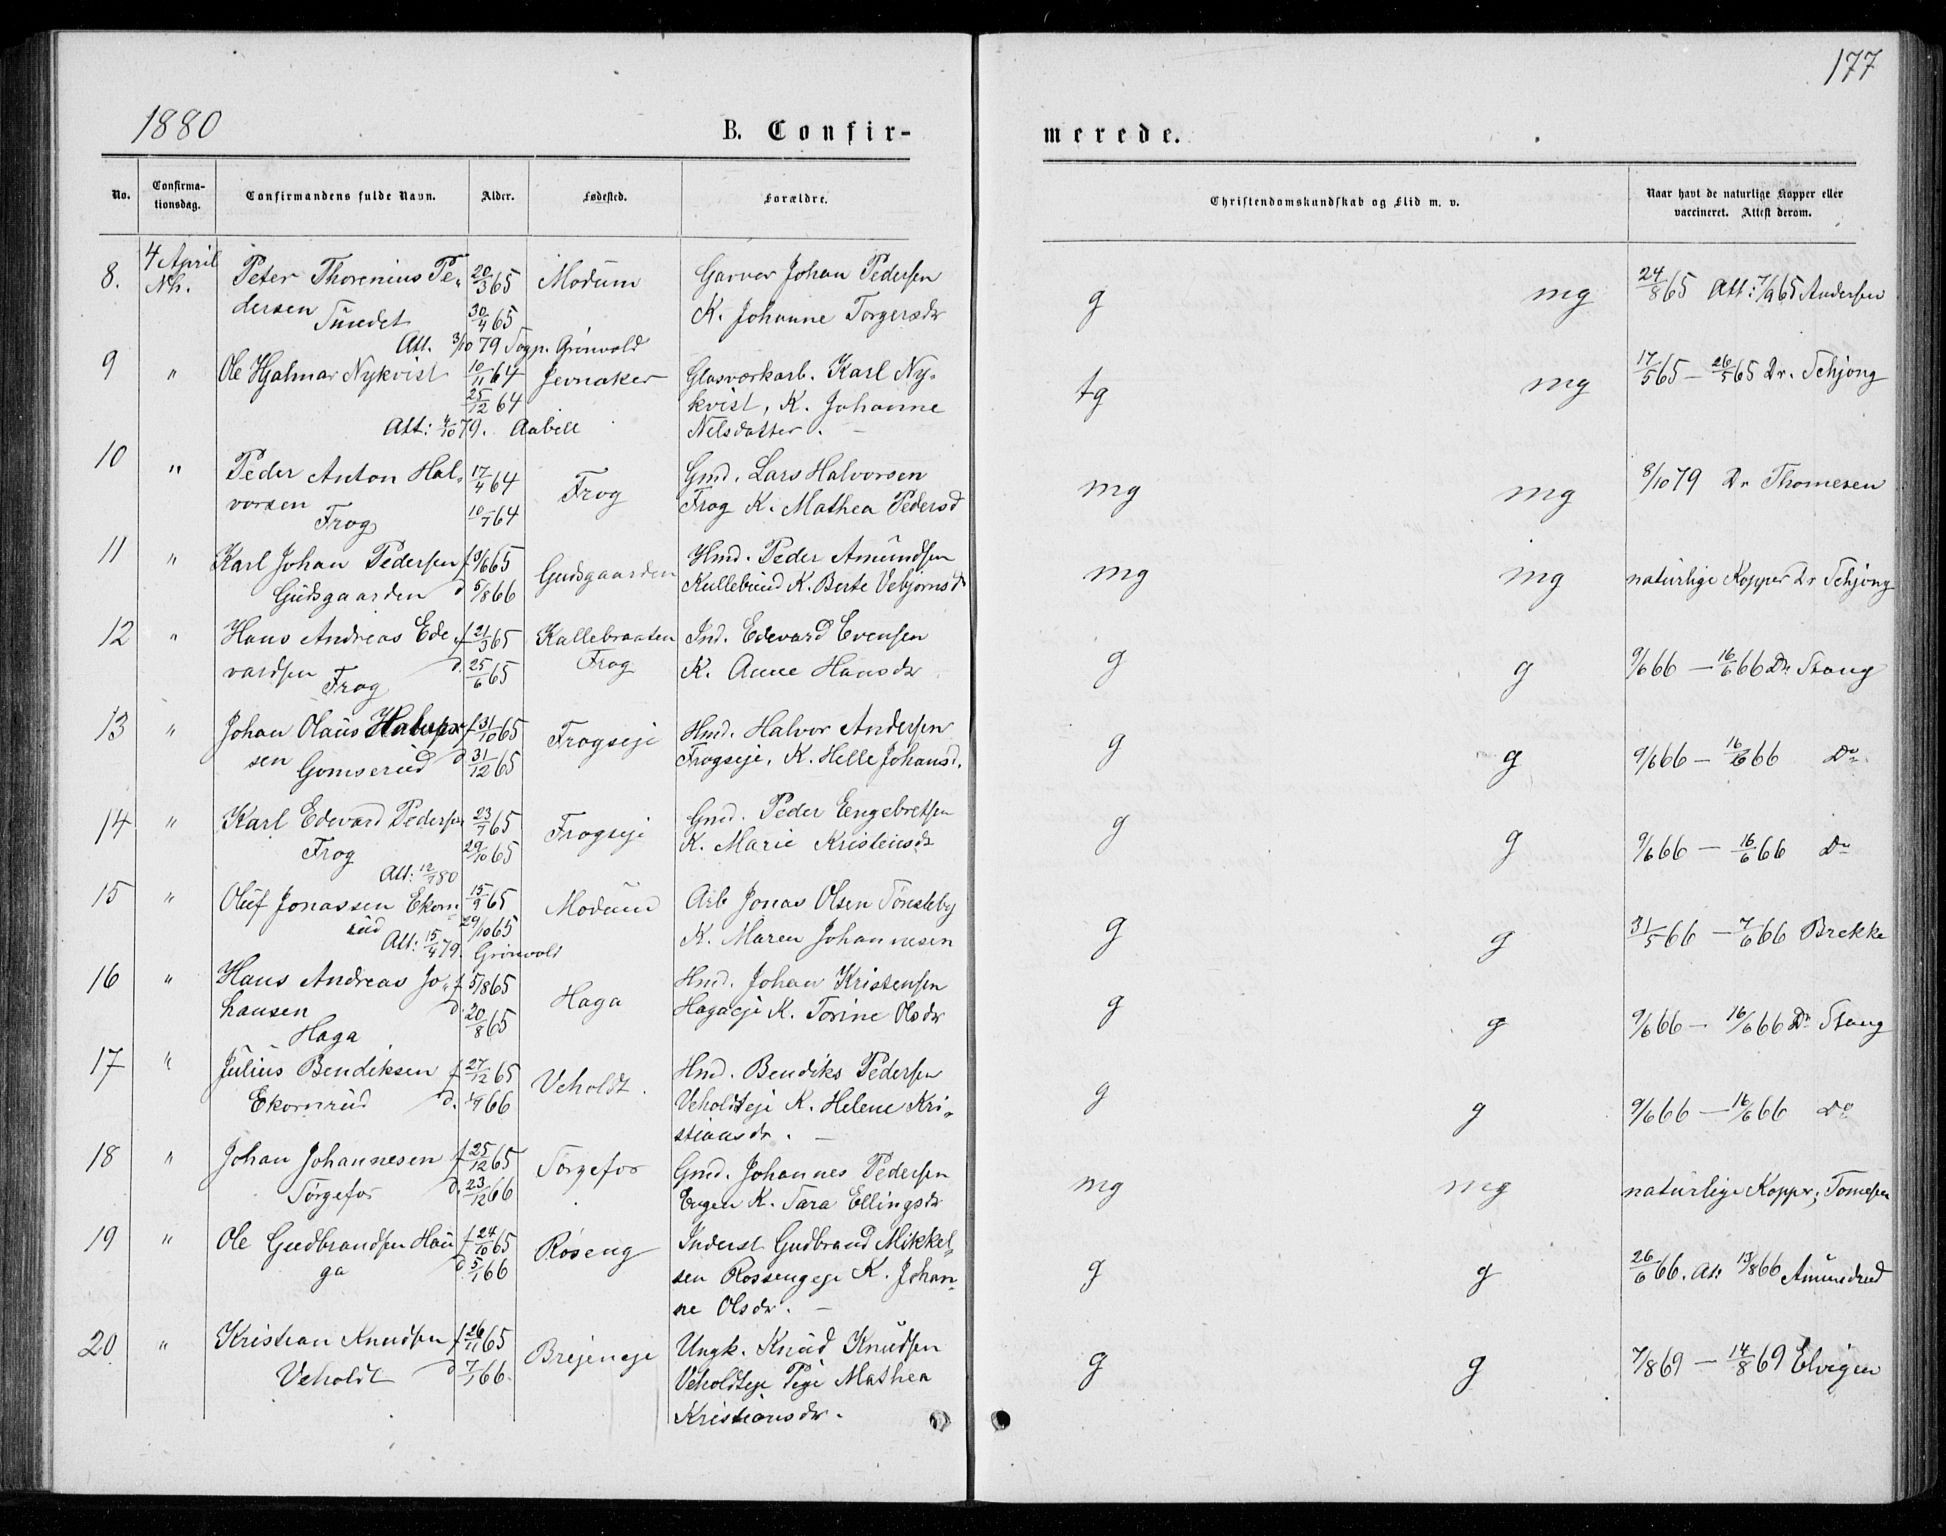 177
1880
B. Confir-
merede.
No.
Confirma-
tionsdag.
Confirmandens fulde Navn.
Alder.
Fødested.
Forældre.
Christendomskundskab og Flid m. v.
Naar havt de naturlige Kopper eller
vaccineret. Attest derom.
8. 4 April Peter Thorenius Pe- 20/3 65 Modum Garver Johan Pedersen g mg 24/8 65 Att: 7/9 65 Andersen
Nh. dersen 30/4 65 K. Johanne Torgersdr
Att. 3/10 79 Sogn. Grönvold
9 " Ole Hjalmar Nykvist 10/11 64 Jevnaker Glasværkarb. Karl Ny- tg mg 17/5 65 – 26/5 65 Dr. Schjong
25/12 64 kvist, K. Johanne
Att: 4/10 79. Nelsdatter. –
10 " Peder Anton Hal- 17/4 64 Frog Gmd. Lars Halvorsen mg mg 8/10 79 Dr Thomesen
vorsen 10/7 64 Frog K. Mathea Pedersd
Frog
11 " Karl Johan Pedersen f 65 Gudsgaarden Hmd. Peder Amundsen mg mg naturlige Kopper Dr Schjong
Gudsgaarden d 5/8 66 K. Berte Vebjørnsd
12 " Hans Andreas Ede- f 21/3 65 Kallebraaten Ind. Edevard Evensen g g 9/6 66 – 16/6 66 Dr Stang
vardsen d. 25/6 65 Frog K. Anne Hansdr
Frog
13 " Johan Olaus Halvor f 31/10 65 Frogseje Hmd. Halvor Andersen g g 9/6 66 – 16/6 66 Do
sen Gomserud d 31/12 65 Frogseje, K. Helle Johansd.
14 " Karl Edevard Pedersen 23/7 65 Frogseje Gmd. Peder Engebretsen g g 9/6 66 – 16/6 66 Do
Frog 29/10 65 K. Marie Kristensdr
Att: 80
15 " Oluf Jonassen Ekorn 15/9 65 Modum Arb Jonas Olsen g g 31/5 66 – 7/6 66 Brekke
rud 29/10 65 K. Maren Johannesen
Att: 15/4 79. Grönvold
16 " Hans Andreas Jo- f 5/8 65 Haga Hmd. Johan Kristensen g g 9/6 66 – 16/6 66 Dr Stang
hansen d. 20/8 65 Hagaeje K. Torine Olsdr
Haga
17 " Julius Bendiksen f 27/12 65 Veholdt. Hmd. Bendiks Pedersen g g 9/6 66 – 16/6 66 Do
Ekornrud d. 66 Veholdteje K. Helene Kri-
stiansdr. –
18 " Johan Johannesen f 25/12 65 Torgefos Gmd. Johannes Pedersen mg mg naturlige Kopper; Tomesen
Torgefos d. 23/12 66 Engen K. Sara Ellingsdr
19 " Ole Gudbrandsen Hau f 24/10 65 Roseng Inderst Gudbrand Mikkel- g g 26/6 66. Att: 66 Amundrud
ga d. 5/1 66 sen Rossengeje K. Johan-
ne Olsdr. –
20 " Kristian Knudsen f 26/11 65 Brejeneje Ungk. Knud Knudsen g g 7/8 69 – 14/8 69 Elvigen
Veholdt d 7/1 66. Veholdteje Pige Mathea
Kristiansdr.